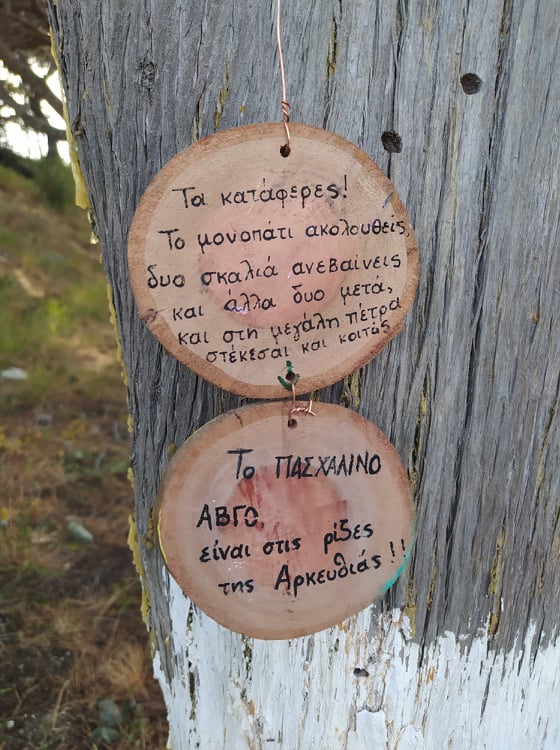 Τα κατάφερες!
Το μονοπάτι ακολουθείς,
δυο σκαλιά ανεβαίνεις
και άλλα δυο μετά,
και στη μεγάλη πέτρα
στέκεσαι και κοιτάς
Το ΠΑΣΧΑΛΙΝΟ
ΑΒΓΟ,
είναι στις ρίζες
της Αρκευθιάς!!